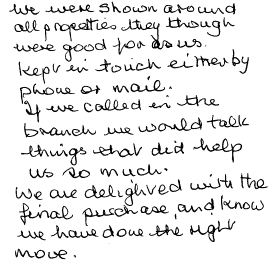 we were shown around
all properties they though
were good for as us.
Kept in touch either by
phone or mail.
If we called in the
branch we would talk
things that did help
us so much.
We are delighted with the
final purchase, and know
we have done the right
move.